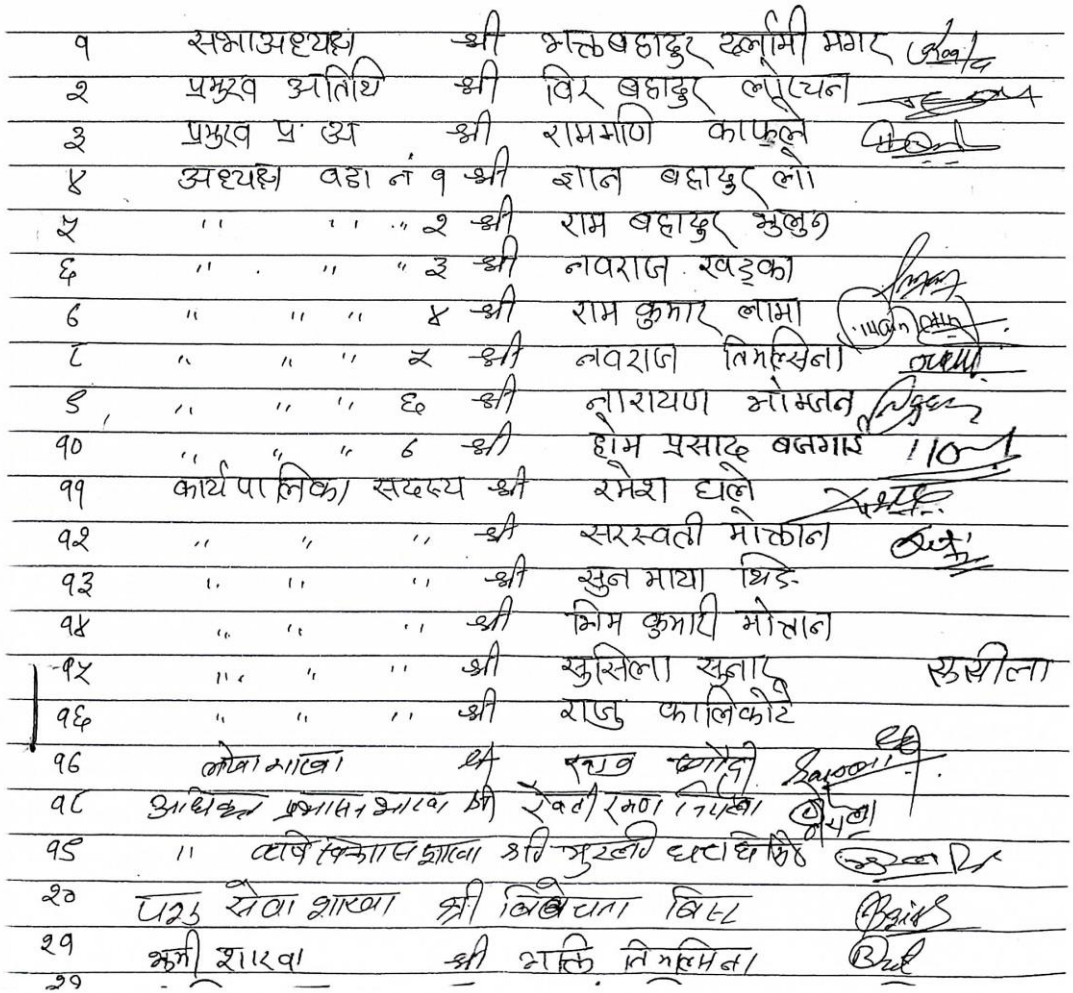 १ सभाअध्यक्ष श्री भक्तबहादुर र्ल्लामी मगर
२ प्रमुख अतिथि श्री विर बहादुर लोप्चन
३ प्रमुख प्र. अ श्री राममणि काफ्ले
४ अध्यक्ष वडा नं १ श्री ज्ञान बहादुर लो
५ " " " २ श्री राम बहादुर मुलुन
६ " " " ३ श्री नवराज खड्का
७ " " " ४ श्री राम कुमार लामा
८ " " " ५ श्री नवराज तिमल्सिना
९ " " " ६ श्री नारायण मोम्जन
१० " " " ७ श्री होम प्रसाद बजगाई
११ कार्यपालिका सदस्य श्री रमेश घले
१२ " " " श्री सरस्वती मोक्तान
१३ " " " श्री सुन माया थिङ
१४ " " " श्री भिम कुमारी मोक्तान
१५ " " " श्री सुसिला सुनार सुसीला
१६ " " " श्री राजु कालिकोटे
१७ लेखा शाखा श्री
१८ अधिकृत प्रशासन शाखा श्री रेवती रमण
१९ " कृषि विकास शाखा श्री मुरली
२० पशु सेवा शाखा श्री बिबेचना बिष्ट
२१ भुमी शाखा श्री भक्ति तिमल्सिना
२२